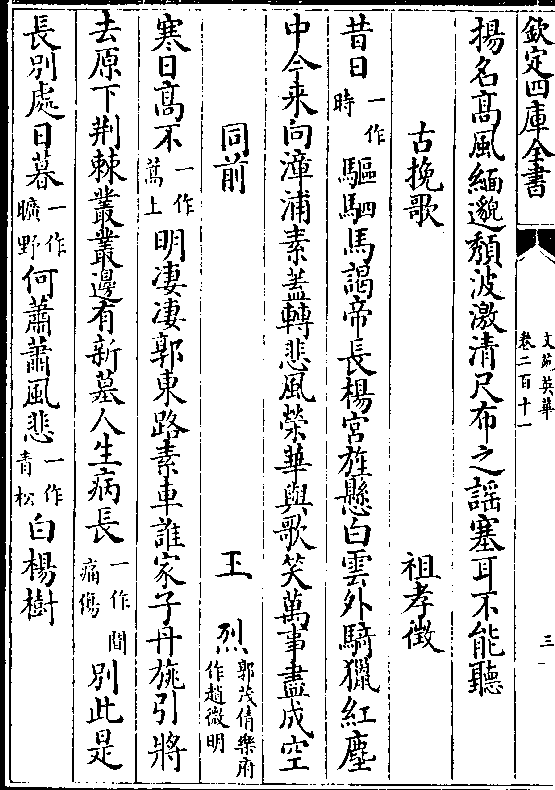 欽定四庫全書
文苑英華
卷二百十一
三
揚名髙風緬邈頽波激清尺布之謡塞耳不能聽
古挽歌 祖孝徴
昔日一作時驅駟馬謁帝長楊宫旌懸白雲外騎獵紅塵
中今来向漳浦素蓋轉悲風榮華與歌笑萬事盡成空
同前 王烈郭茂倩樂府作趙微明
寒日髙不一作蒿上明凄凄郭東路素車誰家子丹旐引將
去原下荆棘叢叢邊有新墓人生病長一作痛傷間别此是
長别處日暮一作曠野何蕭蕭風悲一作青松白楊樹